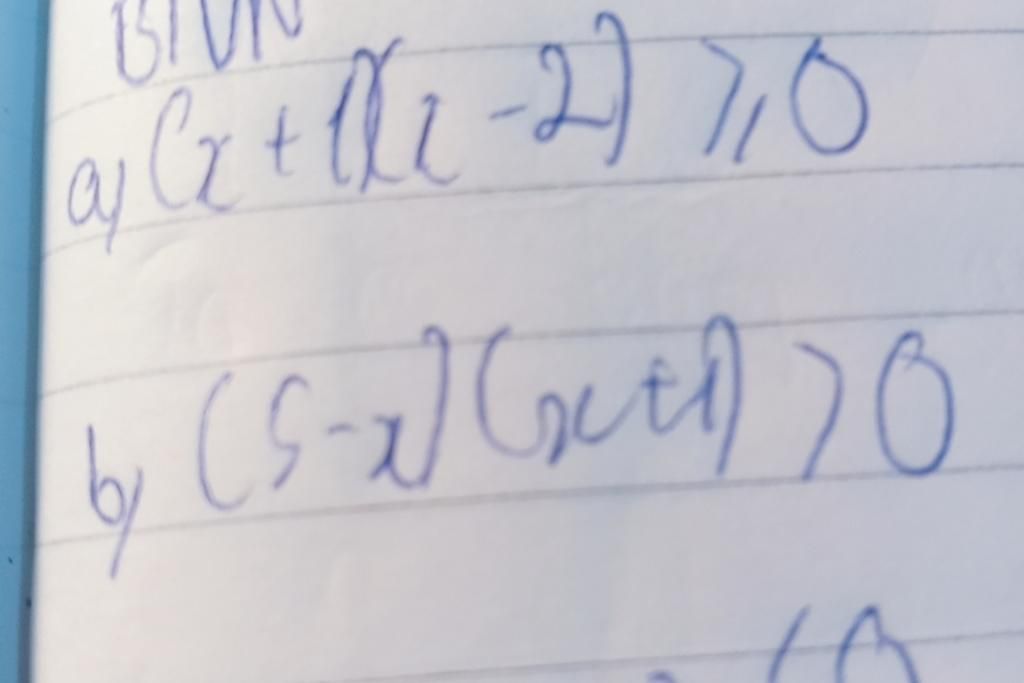 BTVN
a) (x + 1)(x - 2) ≥ 0
b) (5 - x)(x + 1) > 0